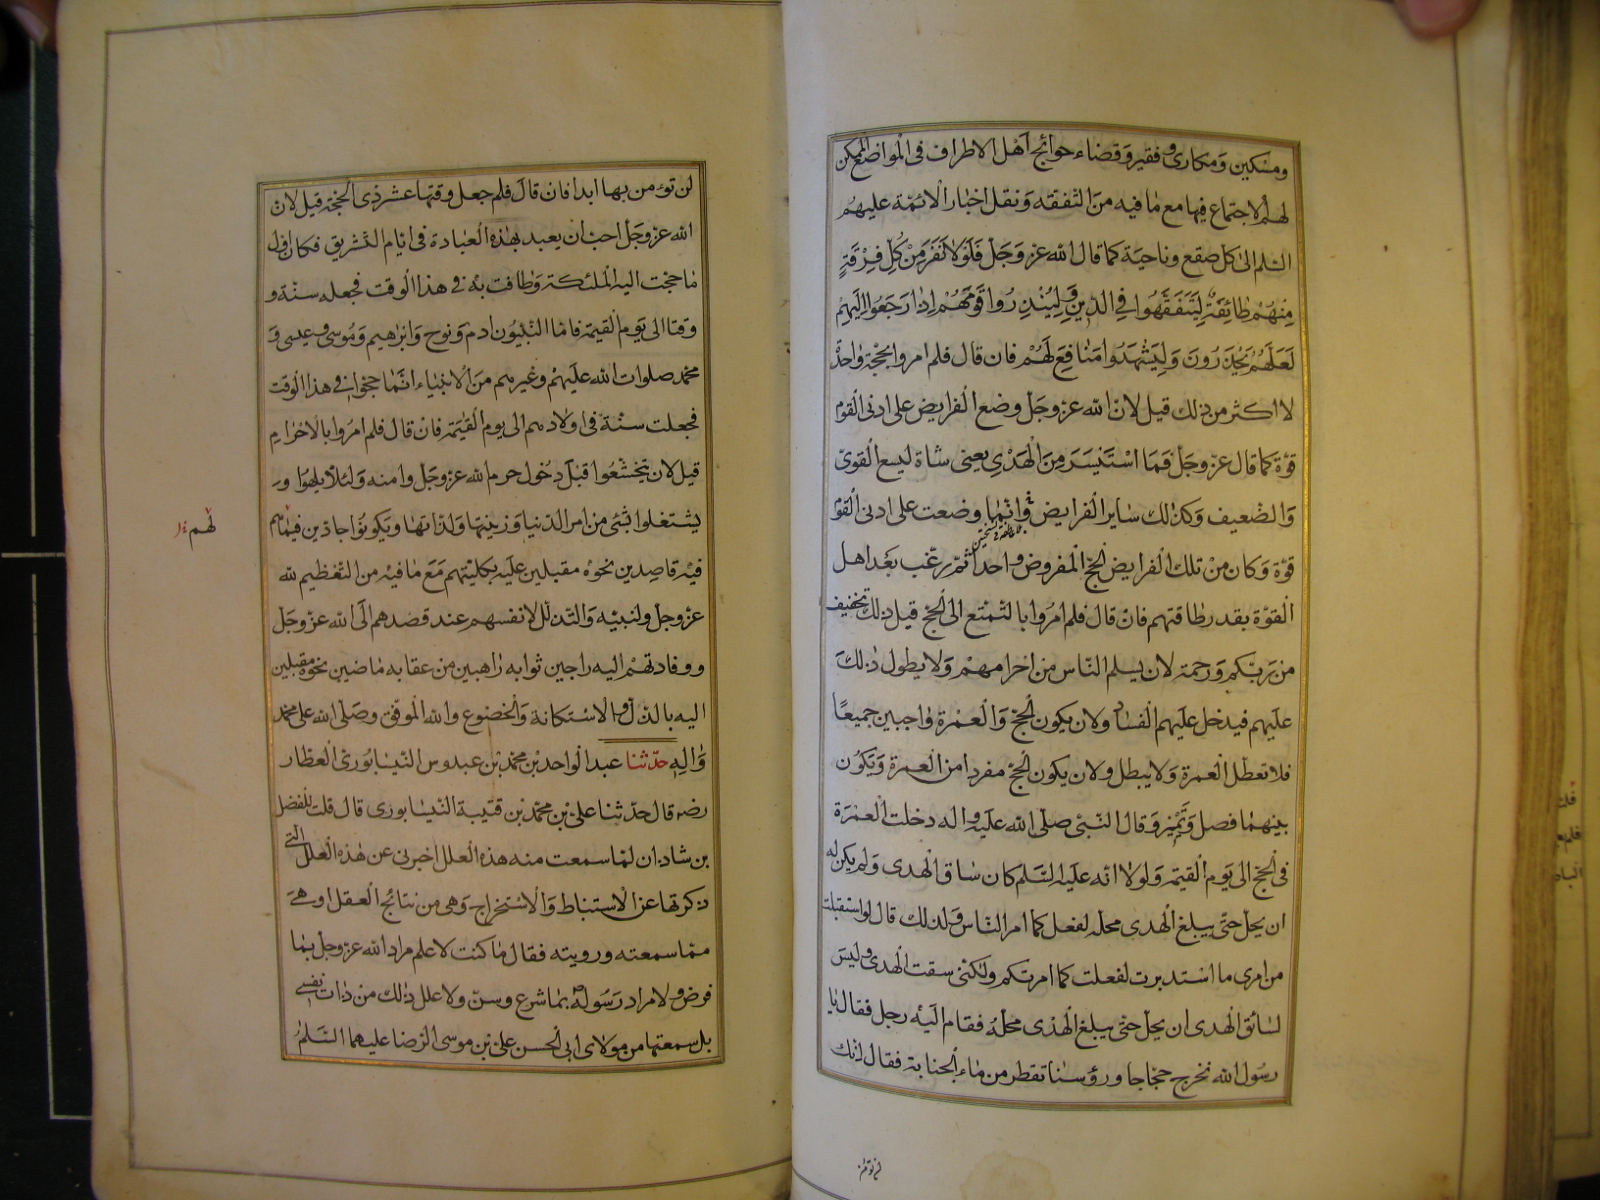 ومسكين ومكارى وفقير وقضاء حوائج اهل الاطراف فى المواضع الممكن
لهم الاجتماع فيها مع ما فيه من التفقه ونقل اخبار الائمة عليهم
السلم الى كل صقع وناحية كما قال الله عز وجل فَلَوْلا نَفَرَ مِنْ كُلِّ فِرْقَةٍ
مِنْهُمْ طائِفَةٌ لِيَتَفَقَّهُوا فِي الدِّينِ وَلِيُنْذِرُوا قَوْمَهُمْ إِذا رَجَعُوا إِلَيْهِمْ
لَعَلَّهُمْ يَحْذَرُونَ وَلِيَشْهَدُوا مَنافِعَ لَهُمْ فان قال فلم امروا بحجة واحدة
لا اكثر من ذلك قيل لان الله عز وجل وضع الفرايض على ادنى القوم
قوة كما قال عز وجل فَمَا اسْتَيْسَرَ مِنَ الْهَدْيِ يعنى شاة ليسع القوى
والضعيف وكذلك ساير الفرايض وانما وضعت على ادنى القوم
قوة وكان من تلك الفرايض الحج المفروض واحدا ثم رغب بعد اهل
القوة بقدر طاقتهم فان قال فلم امروا بالتمتع الى الحج قيل ذلك تخفيف
من ربكم ورحمة لان يسلم الناس من احرامهم ولا يطول ذلك
عليهم فيدخل عليهم الفساد ولان يكون الحج والعمرة واجبين جميعًا
فلا تعطل العمرة ولا يبطل ولان يكون الحج مفردا من العمرة ويكون
بينهما فصل وتميز وقال النبى صلى الله عليه واله دخلت العمرة
فى الحج الى يوم القيمة ولولا انه عليه السلم كان ساق الهدى ولم يكن له
ان يحل حتى يبلغ الهدى محله لفعل كما امر الناس ولذلك قال لو استقبلت
من امرى ما استدبرت لفعلت كما امرتكم ولكنى سقت الهدى وليس
لسائق الهدى ان يحل حتى يبلغ الهدى محله فقام اليه رجل فقال يا
رسول الله نخرج حجاجا ورؤسنا تقطر من ماء الجنابة فقال انك
لن تؤمن
لن تؤمن بها ابدا فان قال فلم جعل وقتها عشر ذى الحجة قيل لان
الله عز وجل احب ان يعبد بهذه العبادة فى ايام التشريق فكان اول
ما حجت اليه الملئكة وطافت به فى هذا الوقت فجعله سنة و
وقتا الى يوم القيمة فاما النبيون ادم ونوح وابرهيم وموسى وعيسى و
محمد صلوات الله عليهم وغيرهم من الانبياء انما حجوا فى هذا الوقت
فجعلت سنة فى اولادهم الى يوم القيمة فان قال فلم امروا بالاحرام
قيل لان يتخشعوا قبل دخول حرم الله عز وجل وامنه ولئلا يلهوا و
يشتغلوا بشئ من امر الدنيا وزينتها ولذاتها ويكونوا جادين فيما هم
لهم
فيه قاصدين نحوه مقبلين عليه بكليتهم مع ما فيه من التعظيم لله
عز وجل ولنبيه والتذلل لانفسهم عند قصدهم الى الله عز وجل
ووفادتهم اليه راجين ثوابه راهبين من عقابه ماضين نحوه مقبلين
اليه بالذل والاستكانة والخضوع والله الموفق وصلى الله على محمد
واله حدثنا عبد الواحد بن محمد بن عبدوس النيسابورى العطار
رضه قال حدثنا على بن محمد بن قتيبة النيسابورى قال قلت للفضل
بن شاذان لما سمعت منه هذه العلل اخبرنى عن هذه العلل التى
ذكرتها عن الاستنباط والاستخراج وهى من نتائج العقل او هى
مما سمعته ورويته فقال ما كنت لاعلم مراد الله عز وجل بما
فرض ولا مراد رسوله بما شرع وسن ولا علل ذلك من ذات نفسى
بل سمعتها من مولاى ابى الحسن على بن موسى الرضا عليهما السلم